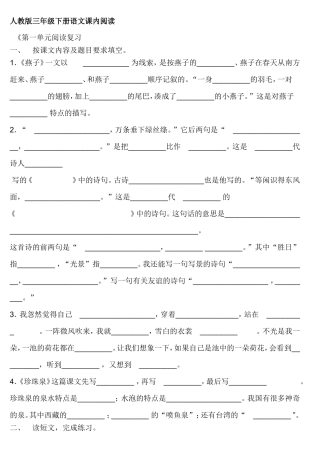 人教版三年级下册语文课内阅读
《第一单元阅读复习
一、 按课文内容及题目要求填空。
1.《燕子》一文以__________为线索,是按燕子的__________、燕子在春天从南方__________、燕子__________和燕子__________四方面来写的。一身__________的羽毛,一对__________的翅膀,加上__________的尾巴,凑成了那样__________的小燕子。”这是对燕子__________特点的描写。
2.“__________,万条垂下绿丝绦。”它后两句是“__________,__________。”是把__________比作__________。这是__________代诗人__________
写的《__________》中的诗句,古诗__________也是他写的。“等闲识得东风面,__________。”这是__________代__________的《__________》中的诗句。这句话的意思是__________。
这首诗的前两句是“__________,__________。”其中“胜日”指__________,“光景”指__________,我还能写一句写景的诗句“__________,__________。”写一句有关友谊的诗句“__________,__________。”
3. 我忽然觉得自己__________,穿着__________,站在__________。一阵微风吹来,我就__________,雪白的衣裳__________。不光是我一朵,一池的荷花都在__________,让我们想象一下,如果自己是池中的一朵荷花,会看到__________,听到__________,又想到__________。
4.《珍珠泉》这篇课文先写__________,再写__________,最后写__________,珍珠泉的泉水特点是:__________;水泡的特点是:__________,我国有很多神奇的泉。其中西藏的__________;__________的“喷鱼泉”;还有台湾的“__________”。
二、 读短文,完成练习。